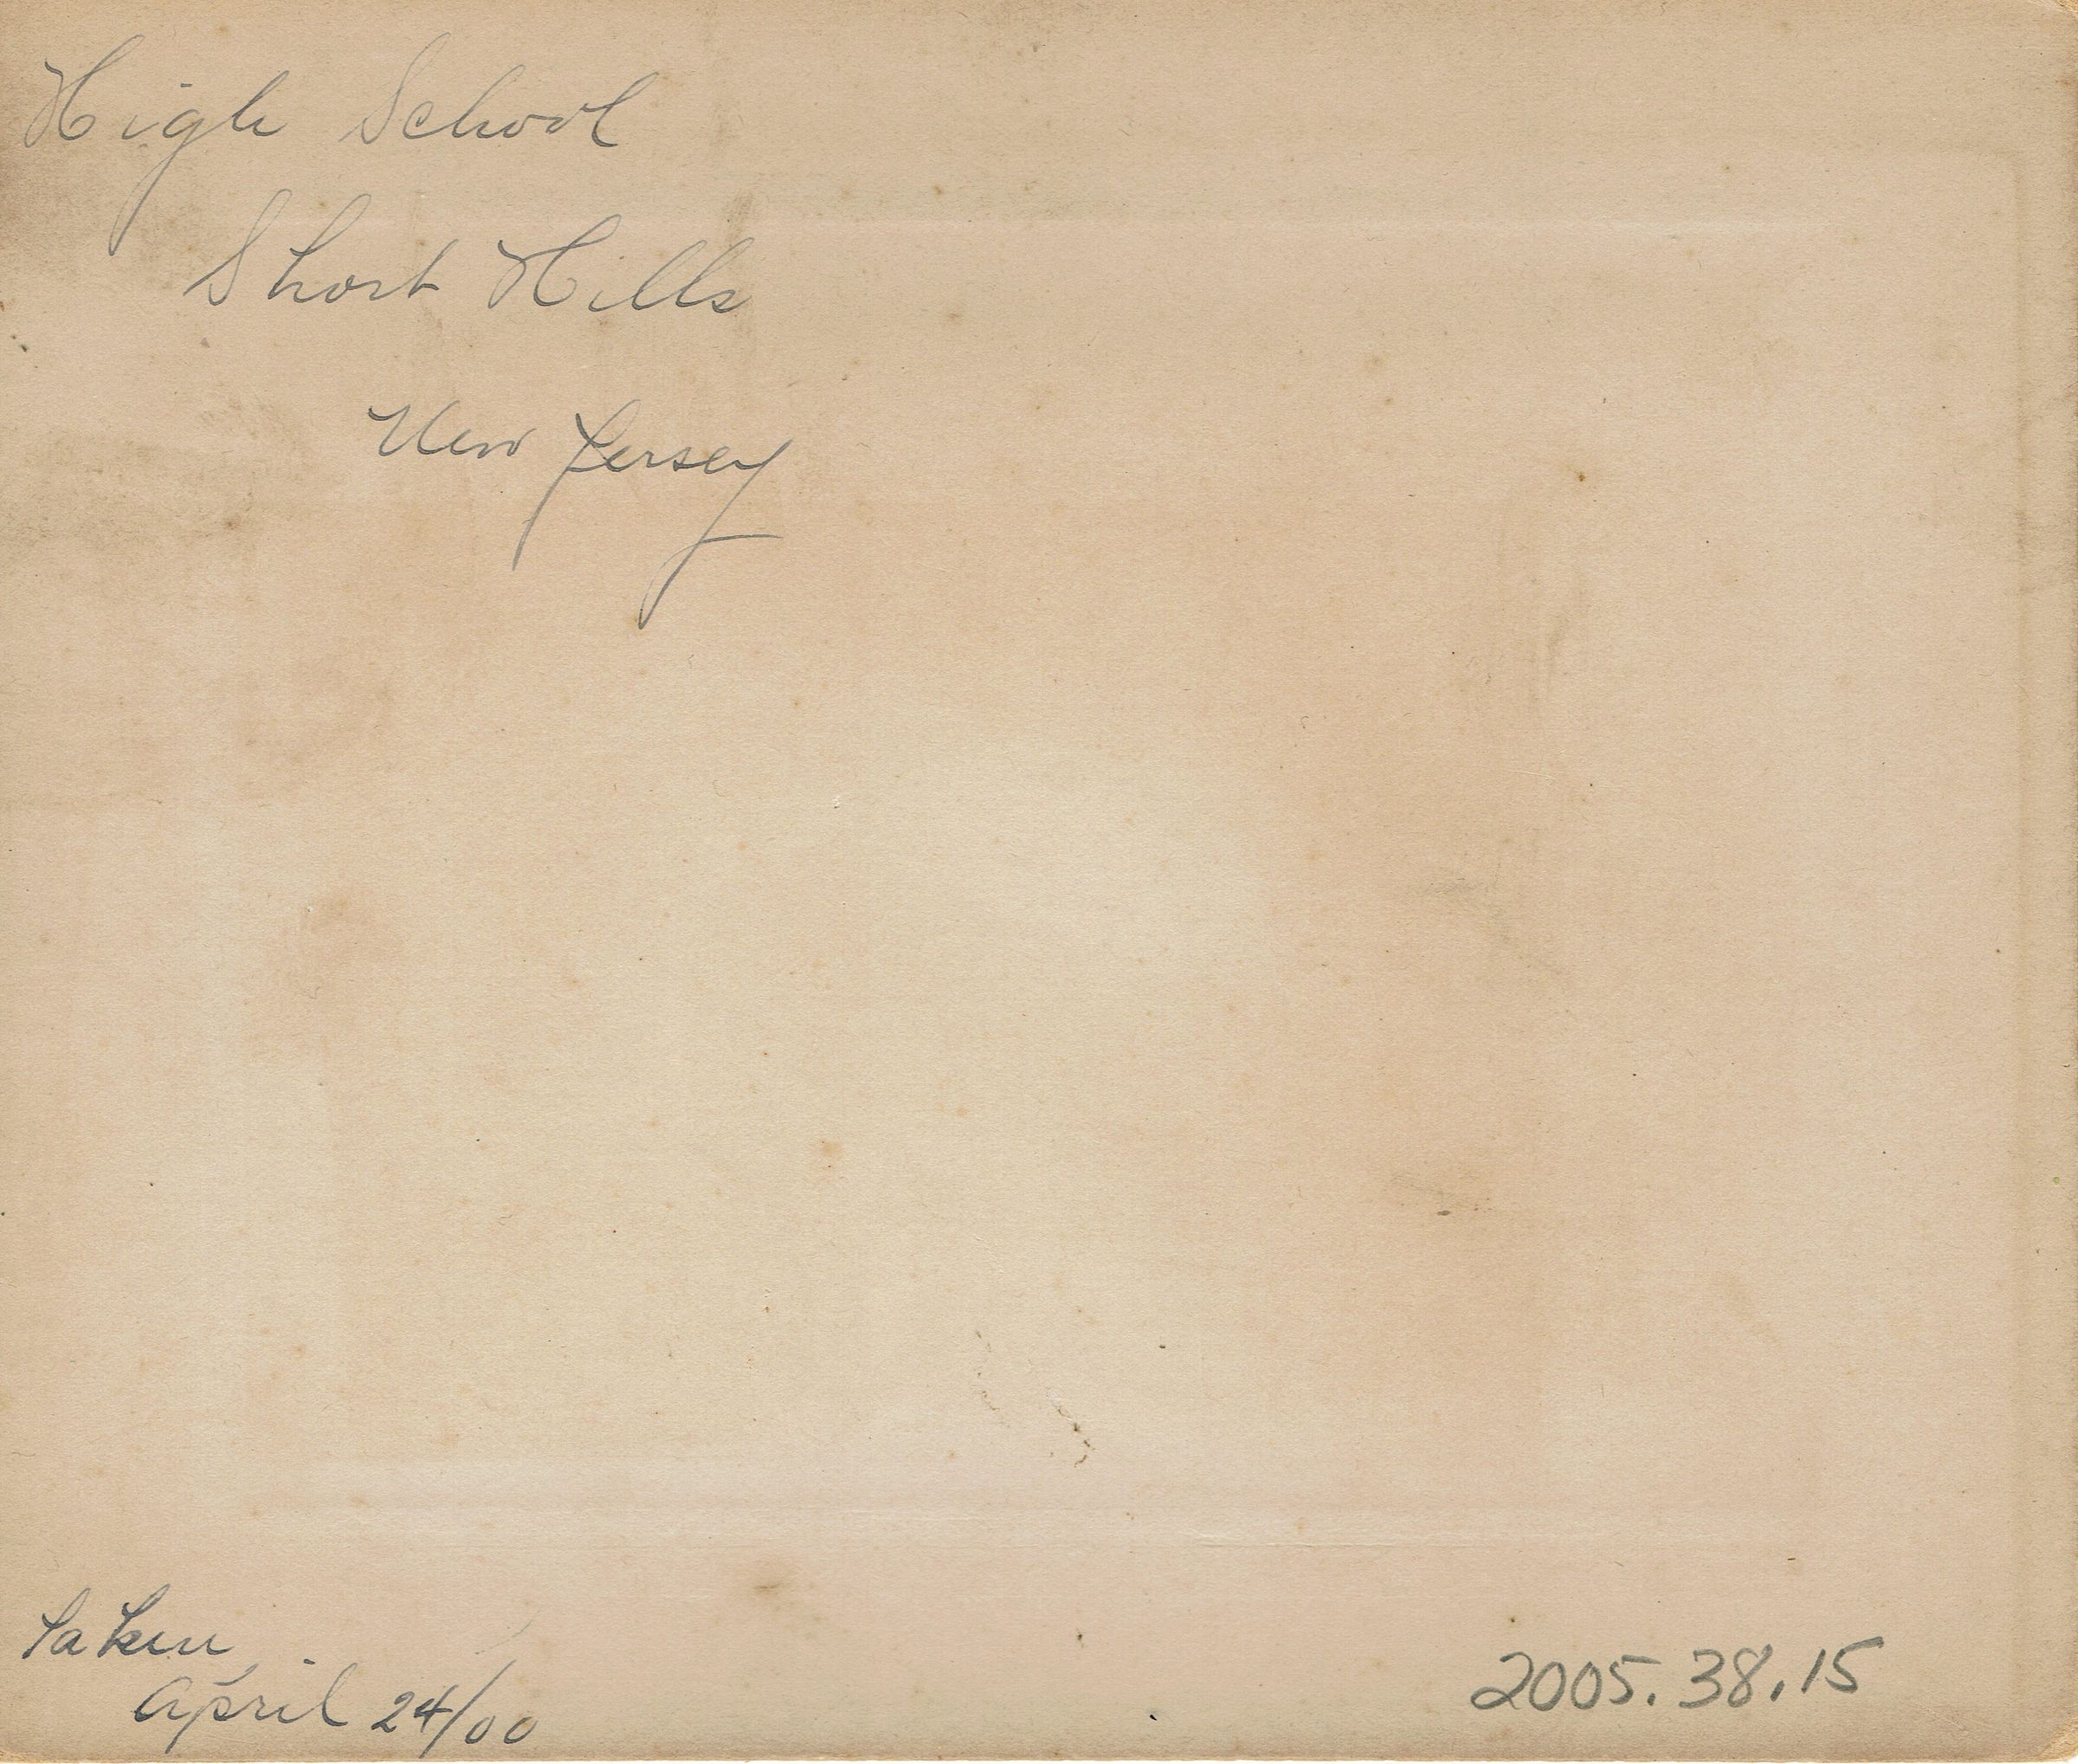 High School
Short Hills
New Jersey
Taken
April 24/00
2005.38.15